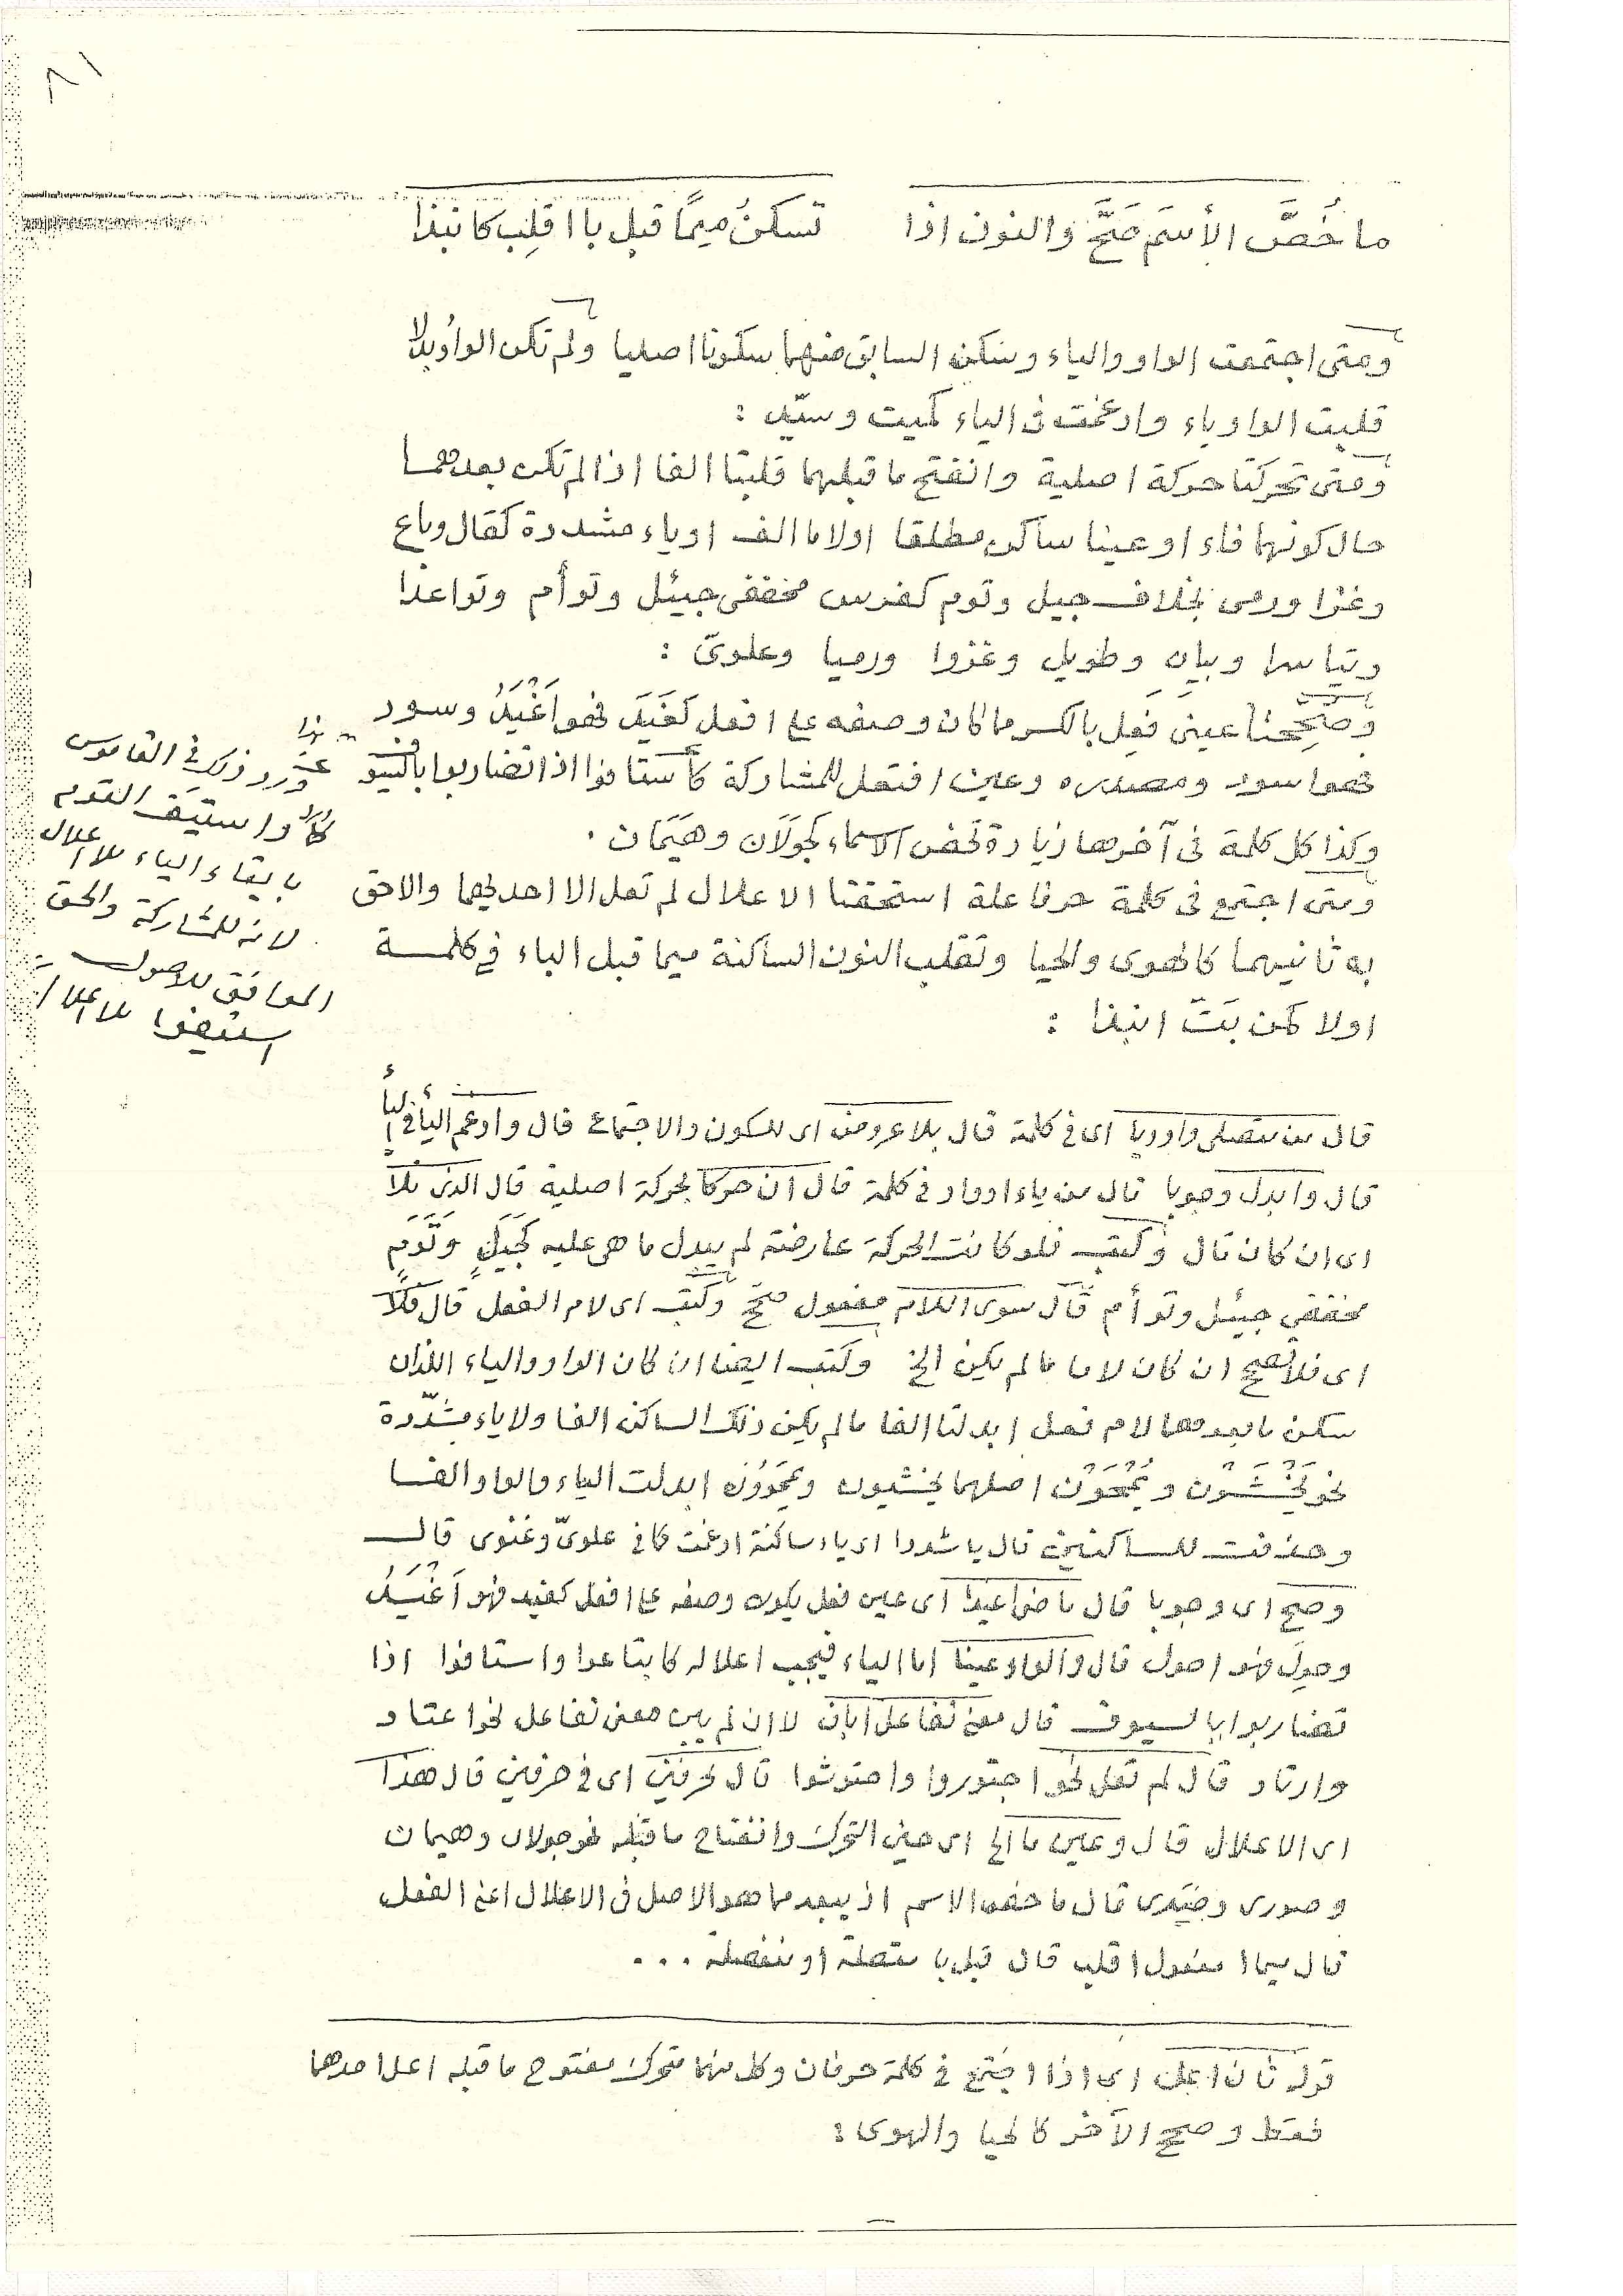 ٨١
ما خُصَّ الأسمَ صَحَّ والنون اذا تسكنُ ميمًا قبل با اقلِب كانبذا
ومتى اجتمعت الواو والياء وسكن السابق منهما سكونا اصليا ولم تكن الواو بدلا
قلبت الواو ياء وادغمت فى الياء كميت وسيّد :
ومتى تحركتا حركة اصلية وانفتح ما قبلهما قلبتا الفا اذا لم تكن بعدهما
حال كونهما فاء او عينا ساكن مطلقا اولاما الف او ياء مشددة كقال وباع
وغزا ورمى بخلاف جيل وتوم كفرس مخففى جيئل وتوأم وتواعدا
وتياسرا وبيان وطويل وغزوا ورميا وعلوىّ :
وصححتا عينى فَعِل بالكسر ما كان وصفه على افعل كغَيَد فهو اَغْيَدُ وسود
فهو اسود ومصدره وعين افتعل للمشاركة كأستافوا اذا تضاربوا بالسيو
ف
وكذا كل كلمة فى آخرها زيادة تخص الاسماء كجَوَلَان وهَيَمَان .
ومتى اجتمع فى كلمة حرفا علة استحقتا الاعلال لم تعل الا احديهما والاحق
به ثانيهما كالهوى والحيا وتقلب النون الساكنة ميما قبل الباء فى كلمة
اولا كمن بَتّ انبذا :
وذكر فى القاموس
واستيف القوم
بابقاء الياء بلا اعلال
لانه للمشاركة والحق
الموافق للاصول
استيفوا بلا اعلال
قال من متصلى واو ويا اى فى كلمة قال بلا عروض اى للسكون والاجتماع قال وادغم اليا فى اليا
قال وابدل وجوبا قال من ياء او واو فى كلمة قال ان حركا بحركة اصلية قال الذى تلا
اى ان كان تال وكتب فلو كانت الحركة عارضة لم يبدل ما هى عليه كجَيَلٍ وتَوَمٍ
مخففى جيئل وتوأم قال سوى اللام مفعول صحّ وكتب اى لام الفعل قال فلا
اى فلا تصح ان كان لاما ما لم يكن الخ وكتب ايضا ان كان الواو والياء اللذان
سكن ما بعدهما لام فعل ابدلتا الفا ما لم يكن ذلك الساكن الفا ولا ياء مشدّدة
نحو يَخْشَوْن ويُمْحَوْن اصلهما يخشيون ويمحوون ابدلت الياء والواو الفا
وحذفت للساكنين قال يا شددا اى ياء ساكنة ادغمت كما فى علوىّ وغنوى قال
وصح اى وجوبا قال ماضى اغيدا اى عين فعل يكون وصفه على افعل كغيد فهو اَغْيَدُ
وحوِلَ فهو احول قال والواو عينا اما الياء فيجب اعلاله كابتاعوا واستافوا اذا
تضاربوا بالسيوف قال معنى تفاعل ابان لا ان لم يبن معنى تفاعل نحو اعتاد
وارتاد قال لم تعل نحو اجتوروا واحتوشوا قال لحرفين اى فى حرفين قال هذا
اى الاعلال قال وعين ما الخ اى حين التحرك وانفتاح ما قبله نحو جولان وهيمان
وصورى وحَيَدى قال ما خص الاسم اذ يبعد مما هو الاصل فى الاعلال اعنى الفعل
قال ميما مفعول اقلب قال قبل با متصلة او منفصلة ...
قوله ثان اعل اى اذا اجتمع فى كلمة حرفان وكل منهما متحرك مفتوح ما قبله اعل احدهما
فقط وصح الآخر كالحيا والهوى :